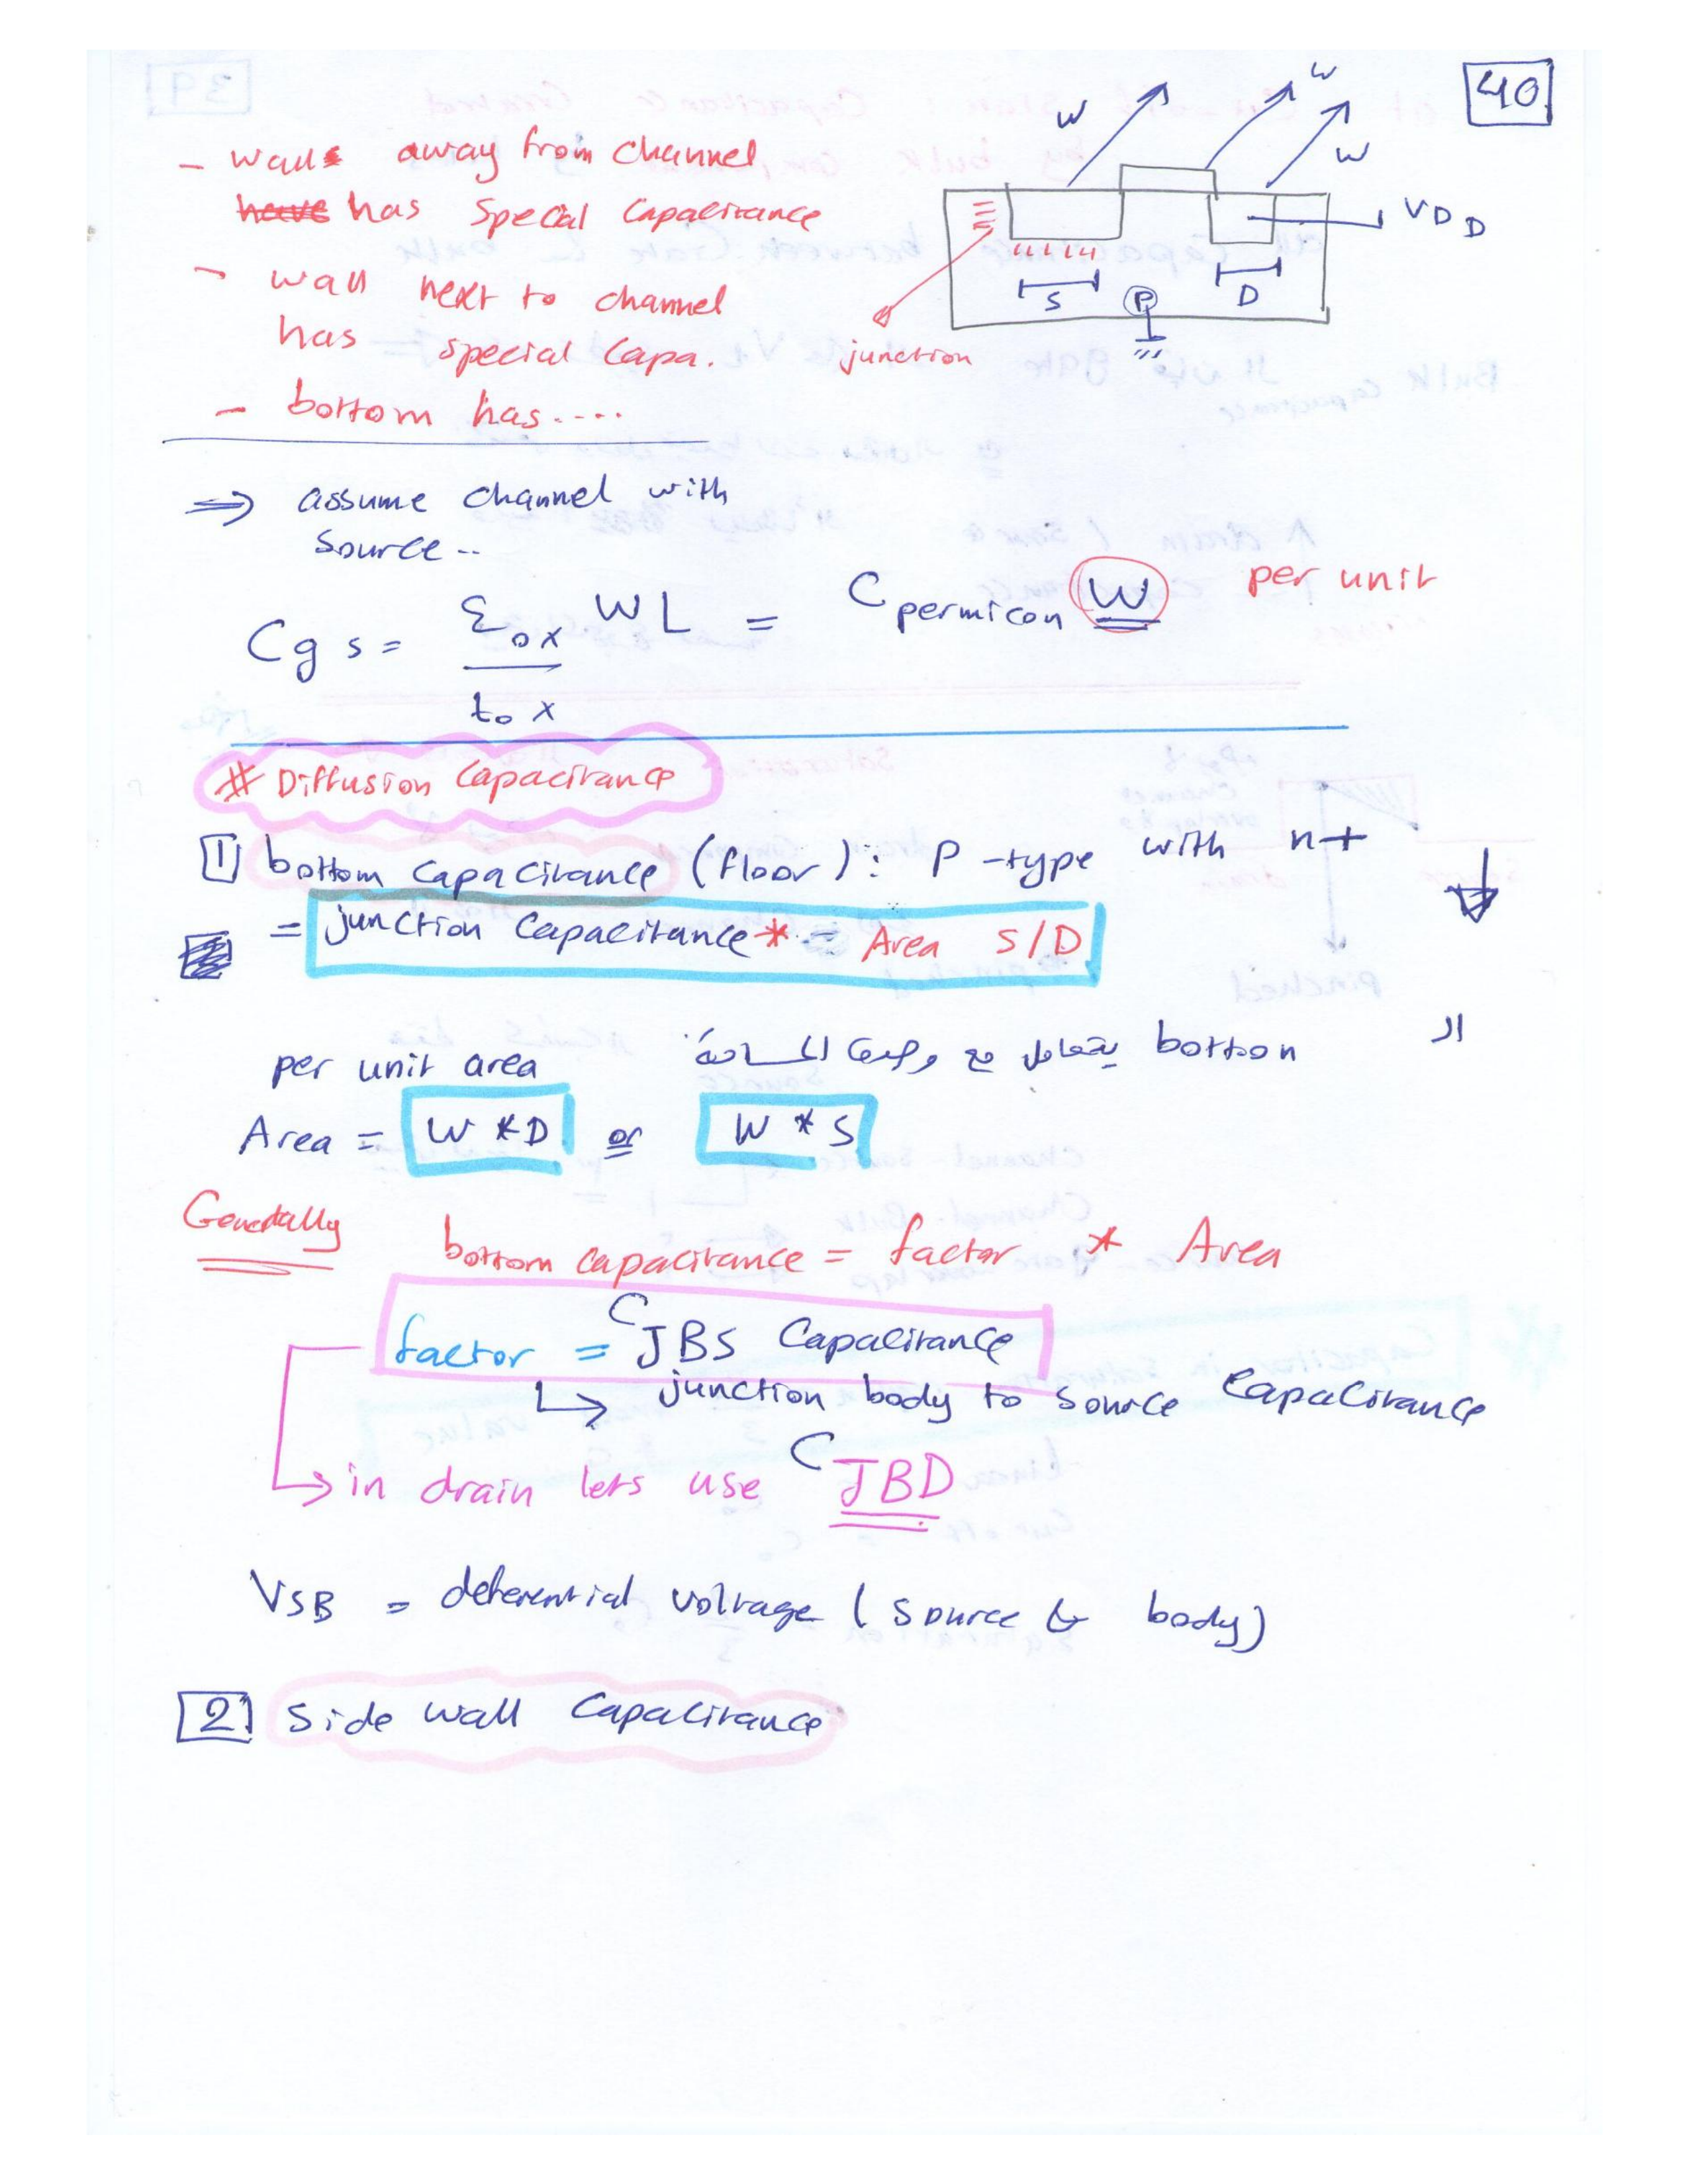 40
- wall away from channel
has special Capacitance
- wall next to channel
has special Capa.
- bottom has....
W
W
W
VDD
S
P
D
junction
⇒ assume channel with
Source..
Cgs = εox/tox WL = Cpermicon W per unit
# Diffusion Capacitance
1 bottom Capacitance (floor): P-type with n+
= junction Capacitance * = Area S/D
الـ bottom يتعامل مع وحدة المساحة
per unit area
Area = W*D or W*S
Generally
bottom capacitance = factor * Area
factor = CJBS Capacitance
↳ junction body to source Capacitance
↳ in drain lets use CJBD
VSB = deferential voltage (source & body)
2 Side wall Capacitance